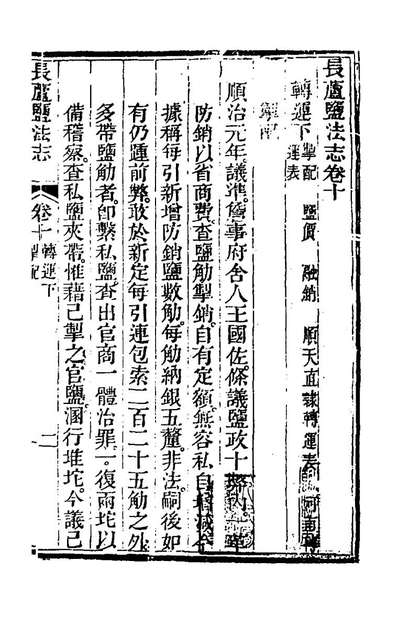 長蘆鹽法志卷十
轉運下 掣配 鹽價 融銷 順天直隸轉運表
運表
掣配
順治元年議準詹事府舍人王國佐條議鹽政十
防銷以省商費查鹽觔掣銷自有定額無容私自
據稱每引新增防銷鹽數觔每觔納銀五釐非法嗣後如
有仍踵前弊敢於新定每引連包索二百二十五觔之外
多帶鹽觔者卽繫私鹽查出官商一體治罪一復兩坨以
備稽察查私鹽夾帶惟藉已掣之官鹽溷行堆坨今議已
長蘆鹽法志 卷十 轉運下 掣配 一